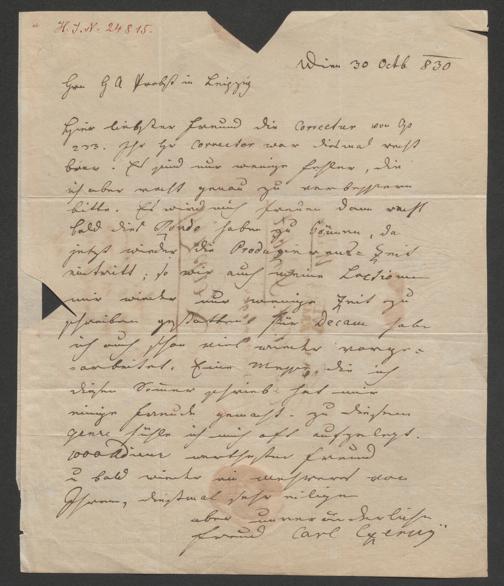 H. I. N. 24815.
Wien 30 Octb 830
Hrn H A Probst in Leipzig
Hier liebster Freund die Correctur von Op
233. Ihr Hr Corrector war diesmal recht
brav. Es sind nur wenige Fehler, die
ich aber recht genau zu verbessern
bitte. Es wird mich freuen dann recht
bald dies Rondo haben zu können, da
jetzt wieder die Producierens-Zeit
eintritt; so wie auch meine Lectionen
mir wieder nur wenige Zeit zu
schreiben gestatten. Für Decam habe
ich auch schon viel wieder vorge-
arbeitet. Eine Messe, die ich
diesen Sommer schrieb hat mir
einige Freude gemacht. zu diesem
genre fühle ich mich oft aufgelegt.
1000 Adieu werthester Freund
u bald wieder ein mehreres von
Ihrem, diesmal sehr eiligen
aber unveränderlichen
Freund Carl Czerny